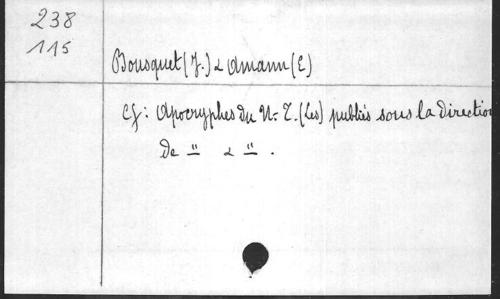 238
115
Bousquet (J.) & Amann (E)
Cf: Apocryphes du N.T. (Les) publiés sous la direction
de " & ".